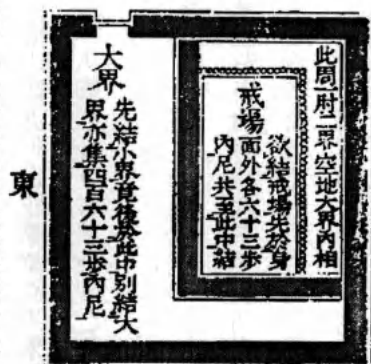 此周一肘二界空地大界內相
戒場
欲結戒場先於身
面外各六十三步
內尼共至此中結
大界
先結小界竟後於此中別結大
界亦集四百六十三步內尼
東